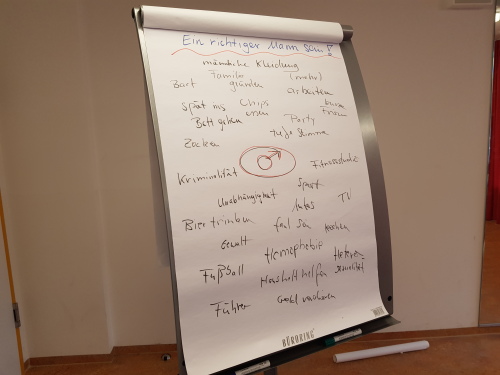 Ein richtiger Mann sein!
männliche Kleidung
Bart Familie gründen (mehr) arbeiten
Spät ins Bett gehen Chips essen Party
tiefe Stimme
Zocken
Kriminalität Fitnessstudio
Unabhängigkeit Sport
Autos TV
Bier trinken faul sein kochen
Gewalt
Homophobie
Fußball Haushalt helfen Heterosexualität
Führer Geld verdienen